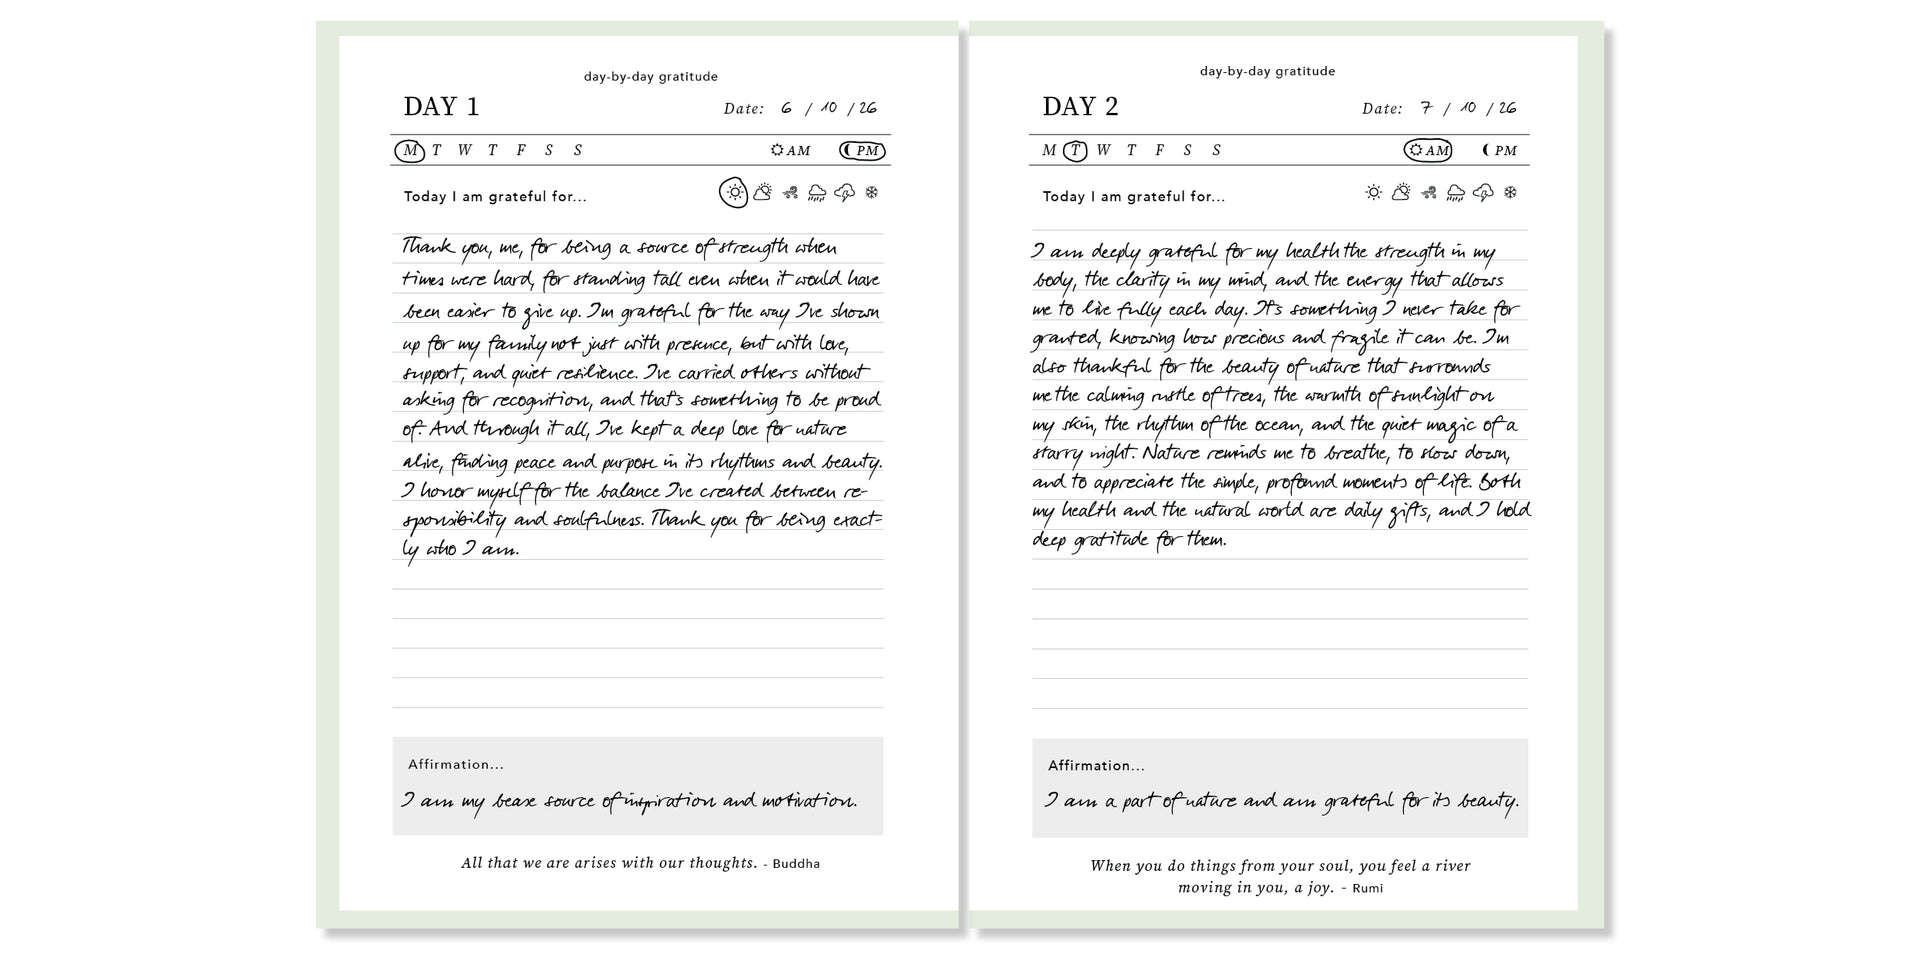 day-by-day gratitude
DAY 1
Date: 6 / 10 / 26
M T W T F S S
AM PM
Today I am grateful for...
Thank you, me, for being a source of strength when
times were hard, for standing tall even when it would have
been easier to give up. I'm grateful for the way I've shown
up for my family not just with presence, but with love,
support, and quiet resilience. I've carried others without
asking for recognition, and that's something to be proud
of. And through it all, I've kept a deep love for nature
alive, finding peace and purpose in its rhythms and beauty.
I honor myself for the balance I've created between re-
sponsibility and soulfulness. Thank you for being exact-
ly who I am.
Affirmation...
I am my bease source of inspiration and motivation.
All that we are arises with our thoughts. - Buddha
day-by-day gratitude
DAY 2
Date: 7 / 10 / 26
M T W T F S S
AM PM
Today I am grateful for...
I am deeply grateful for my health the strength in my
body, the clarity in my mind, and the energy that allows
me to live fully each day. It's something I never take for
granted, knowing how precious and fragile it can be. I'm
also thankful for the beauty of nature that surrounds
me the calming rustle of trees, the warmth of sunlight on
my skin, the rhythm of the ocean, and the quiet magic of a
starry night. Nature reminds me to breathe, to slow down,
and to appreciate the simple, profound moments of life. Both
my health and the natural world are daily gifts, and I hold
deep gratitude for them.
Affirmation...
I am a part of nature and am grateful for its beauty.
When you do things from your soul, you feel a river
moving in you, a joy. - Rumi